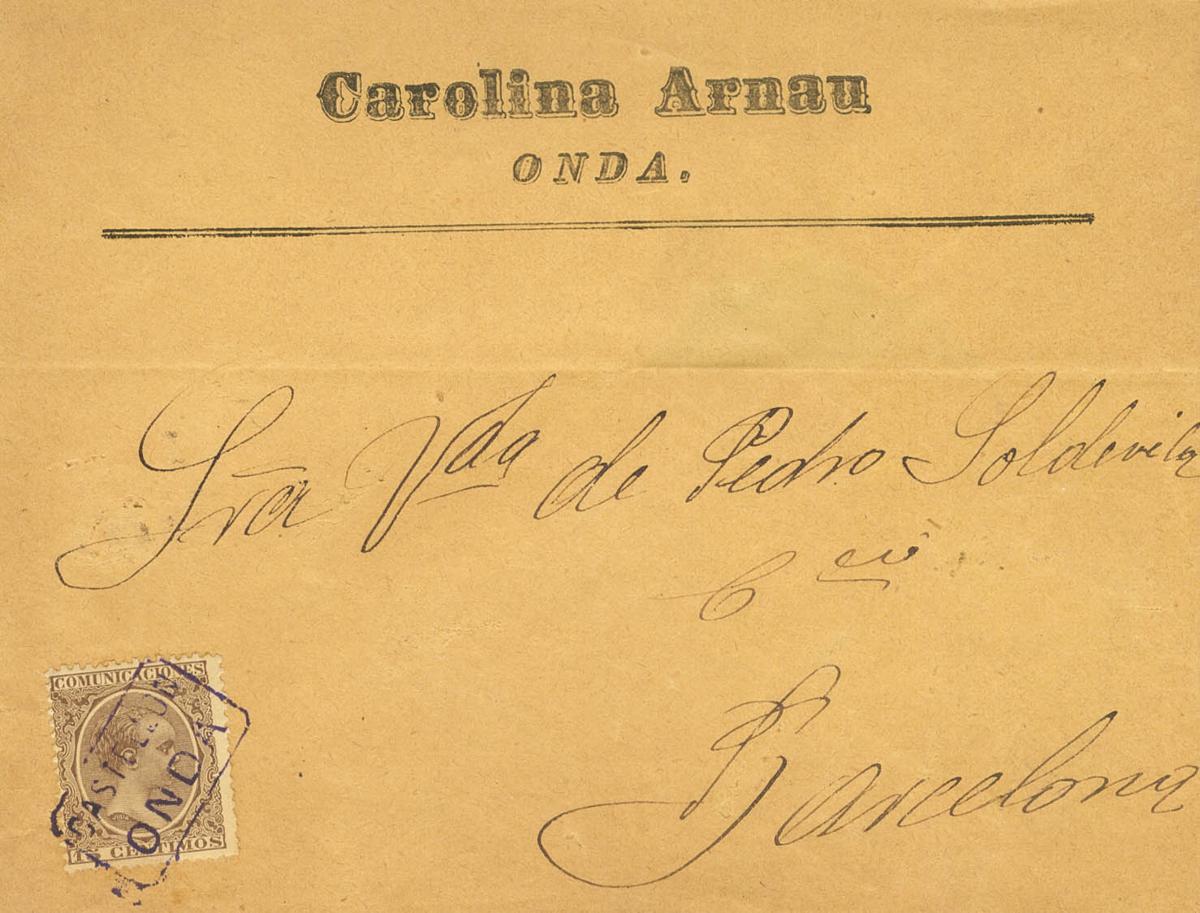 Carolina Arnau
ONDA.
Sra Vda de Pedro Soldevila
Barcelona
COMUNICACIONES
15 CENTIMOS
ONDA